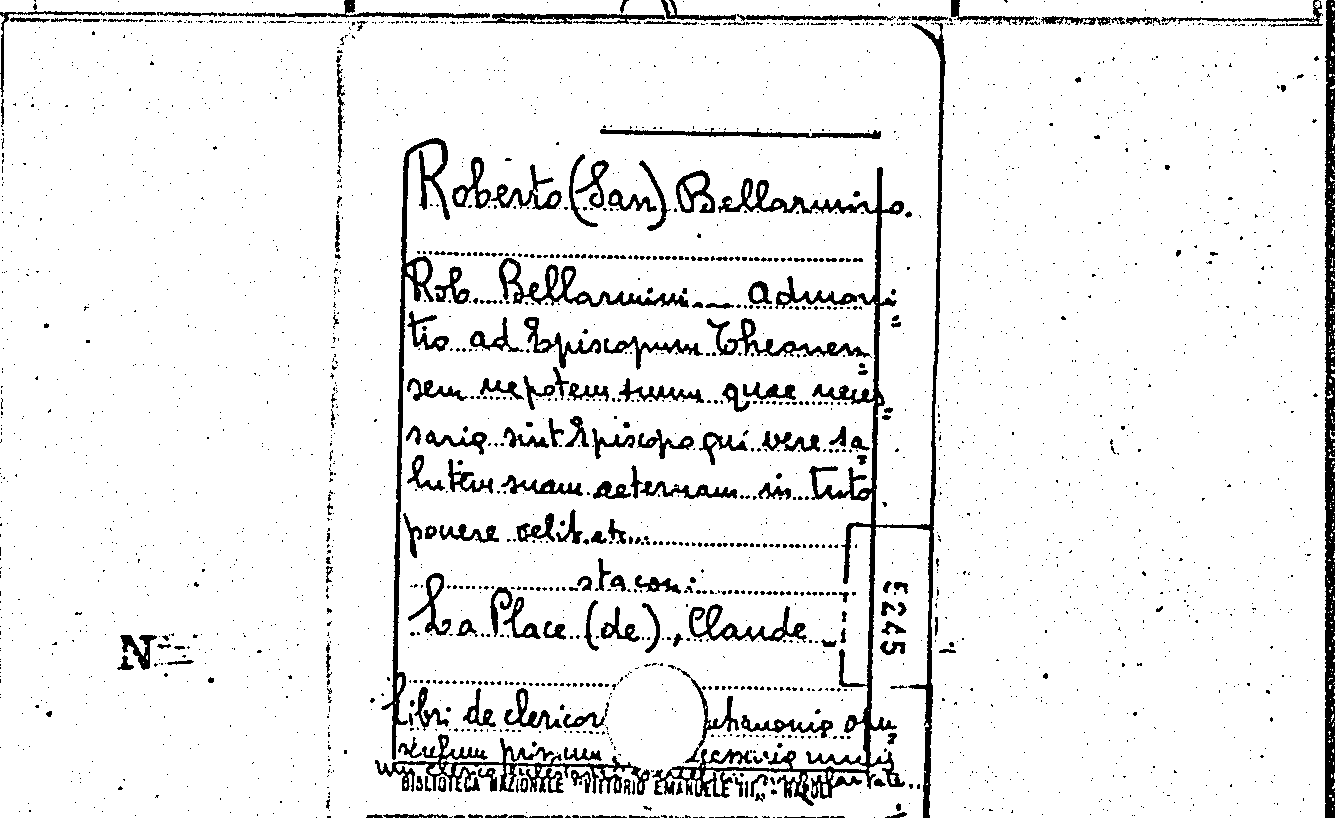 Roberto (San) Bellarmino.
Rob. Bellarmini... admoni=
tio ad Episcopum Theanen=
sem nepotem suum quae neces=
saria sint Episcopo qui vere sa=
lutem suam aeternam in tuto
ponere velit. etc...
sta con:
La Place (de), Claude
5245
Libri de clericor
opu=
sculum primum
BIBLIOTECA NAZIONALE "VITTORIO EMANUELE III" - NAPOLI
N